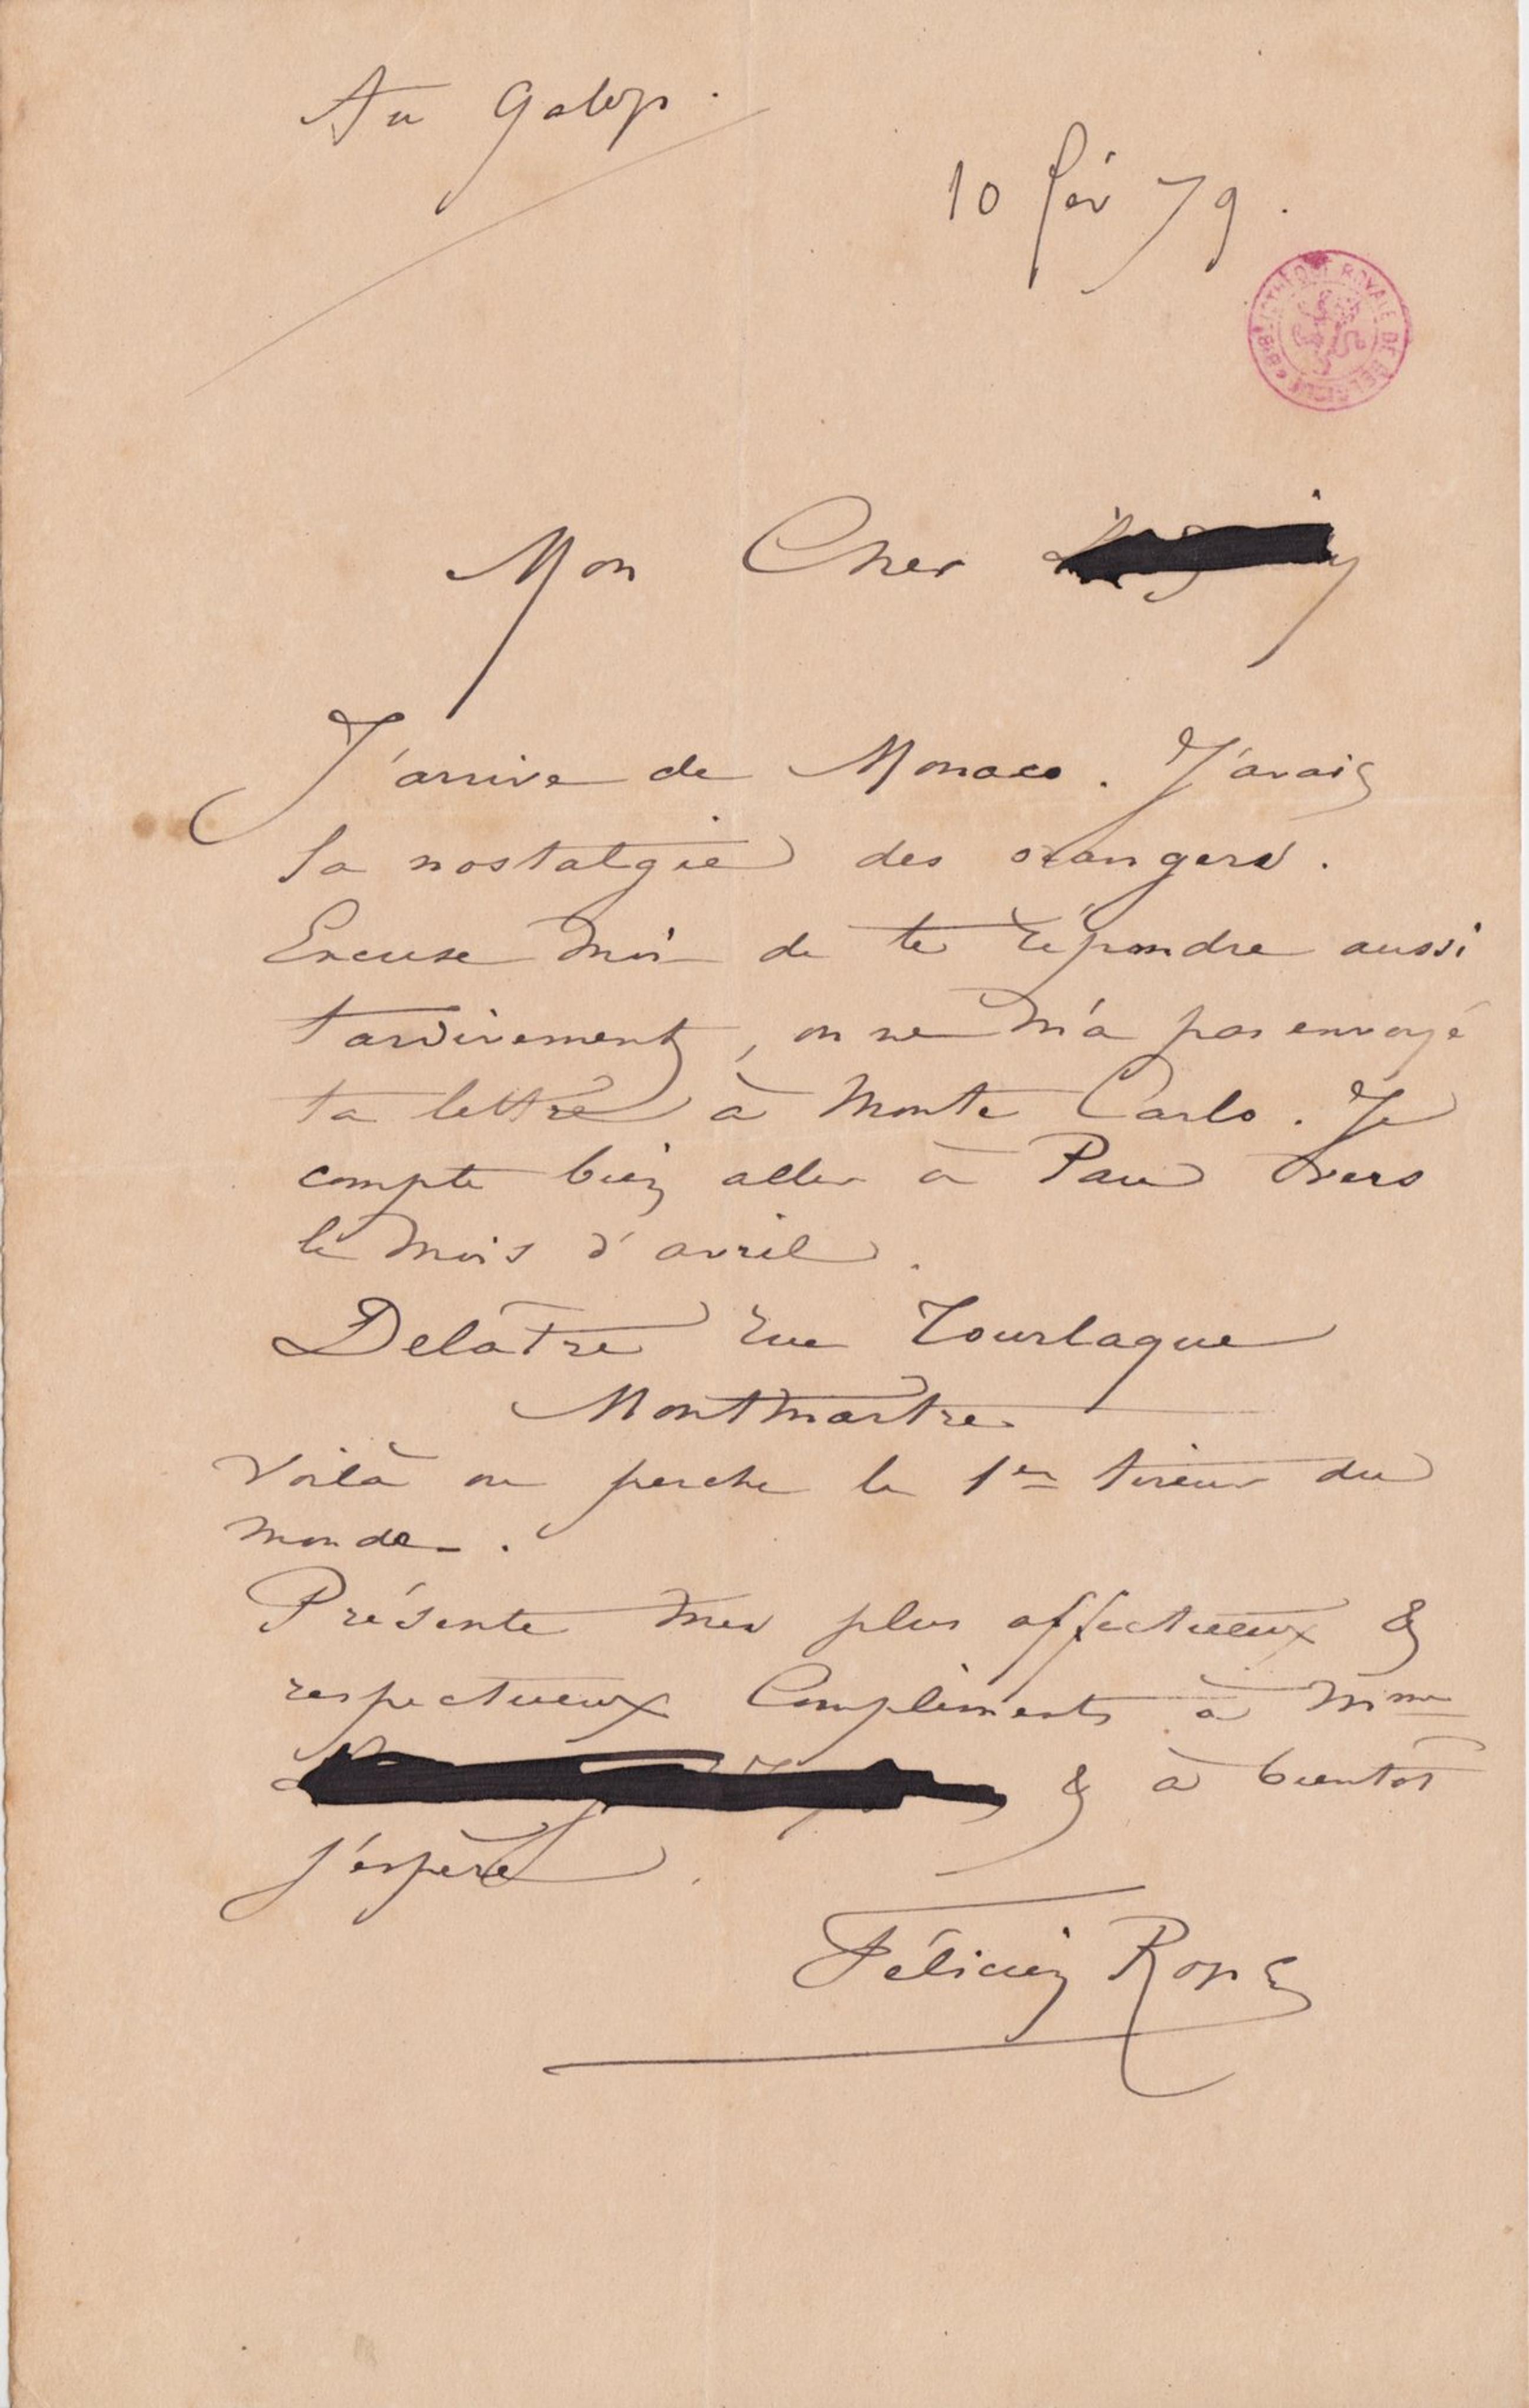 Au Galop.
10 fév 79.
BIBLIOTHÈQUE ROYALE DE BELGIQUE
Mon Cher
J'arrive de Monaco. J'avais
la nostalgie des orangers.
Excuse moi de te répondre aussi
tardivement, on ne m'a pas envoyé
ta lettre à Monte Carlo. Je
compte bien aller à Pau vers
le mois d'avril.
Delâtre rue Tourlaque
Montmartre
Voilà ou perche le 1er tireur du
monde.
Présente mes plus affectueux &
respectueux Compliments à Mme
& à bientôt
j'espère.
Félicien Rops